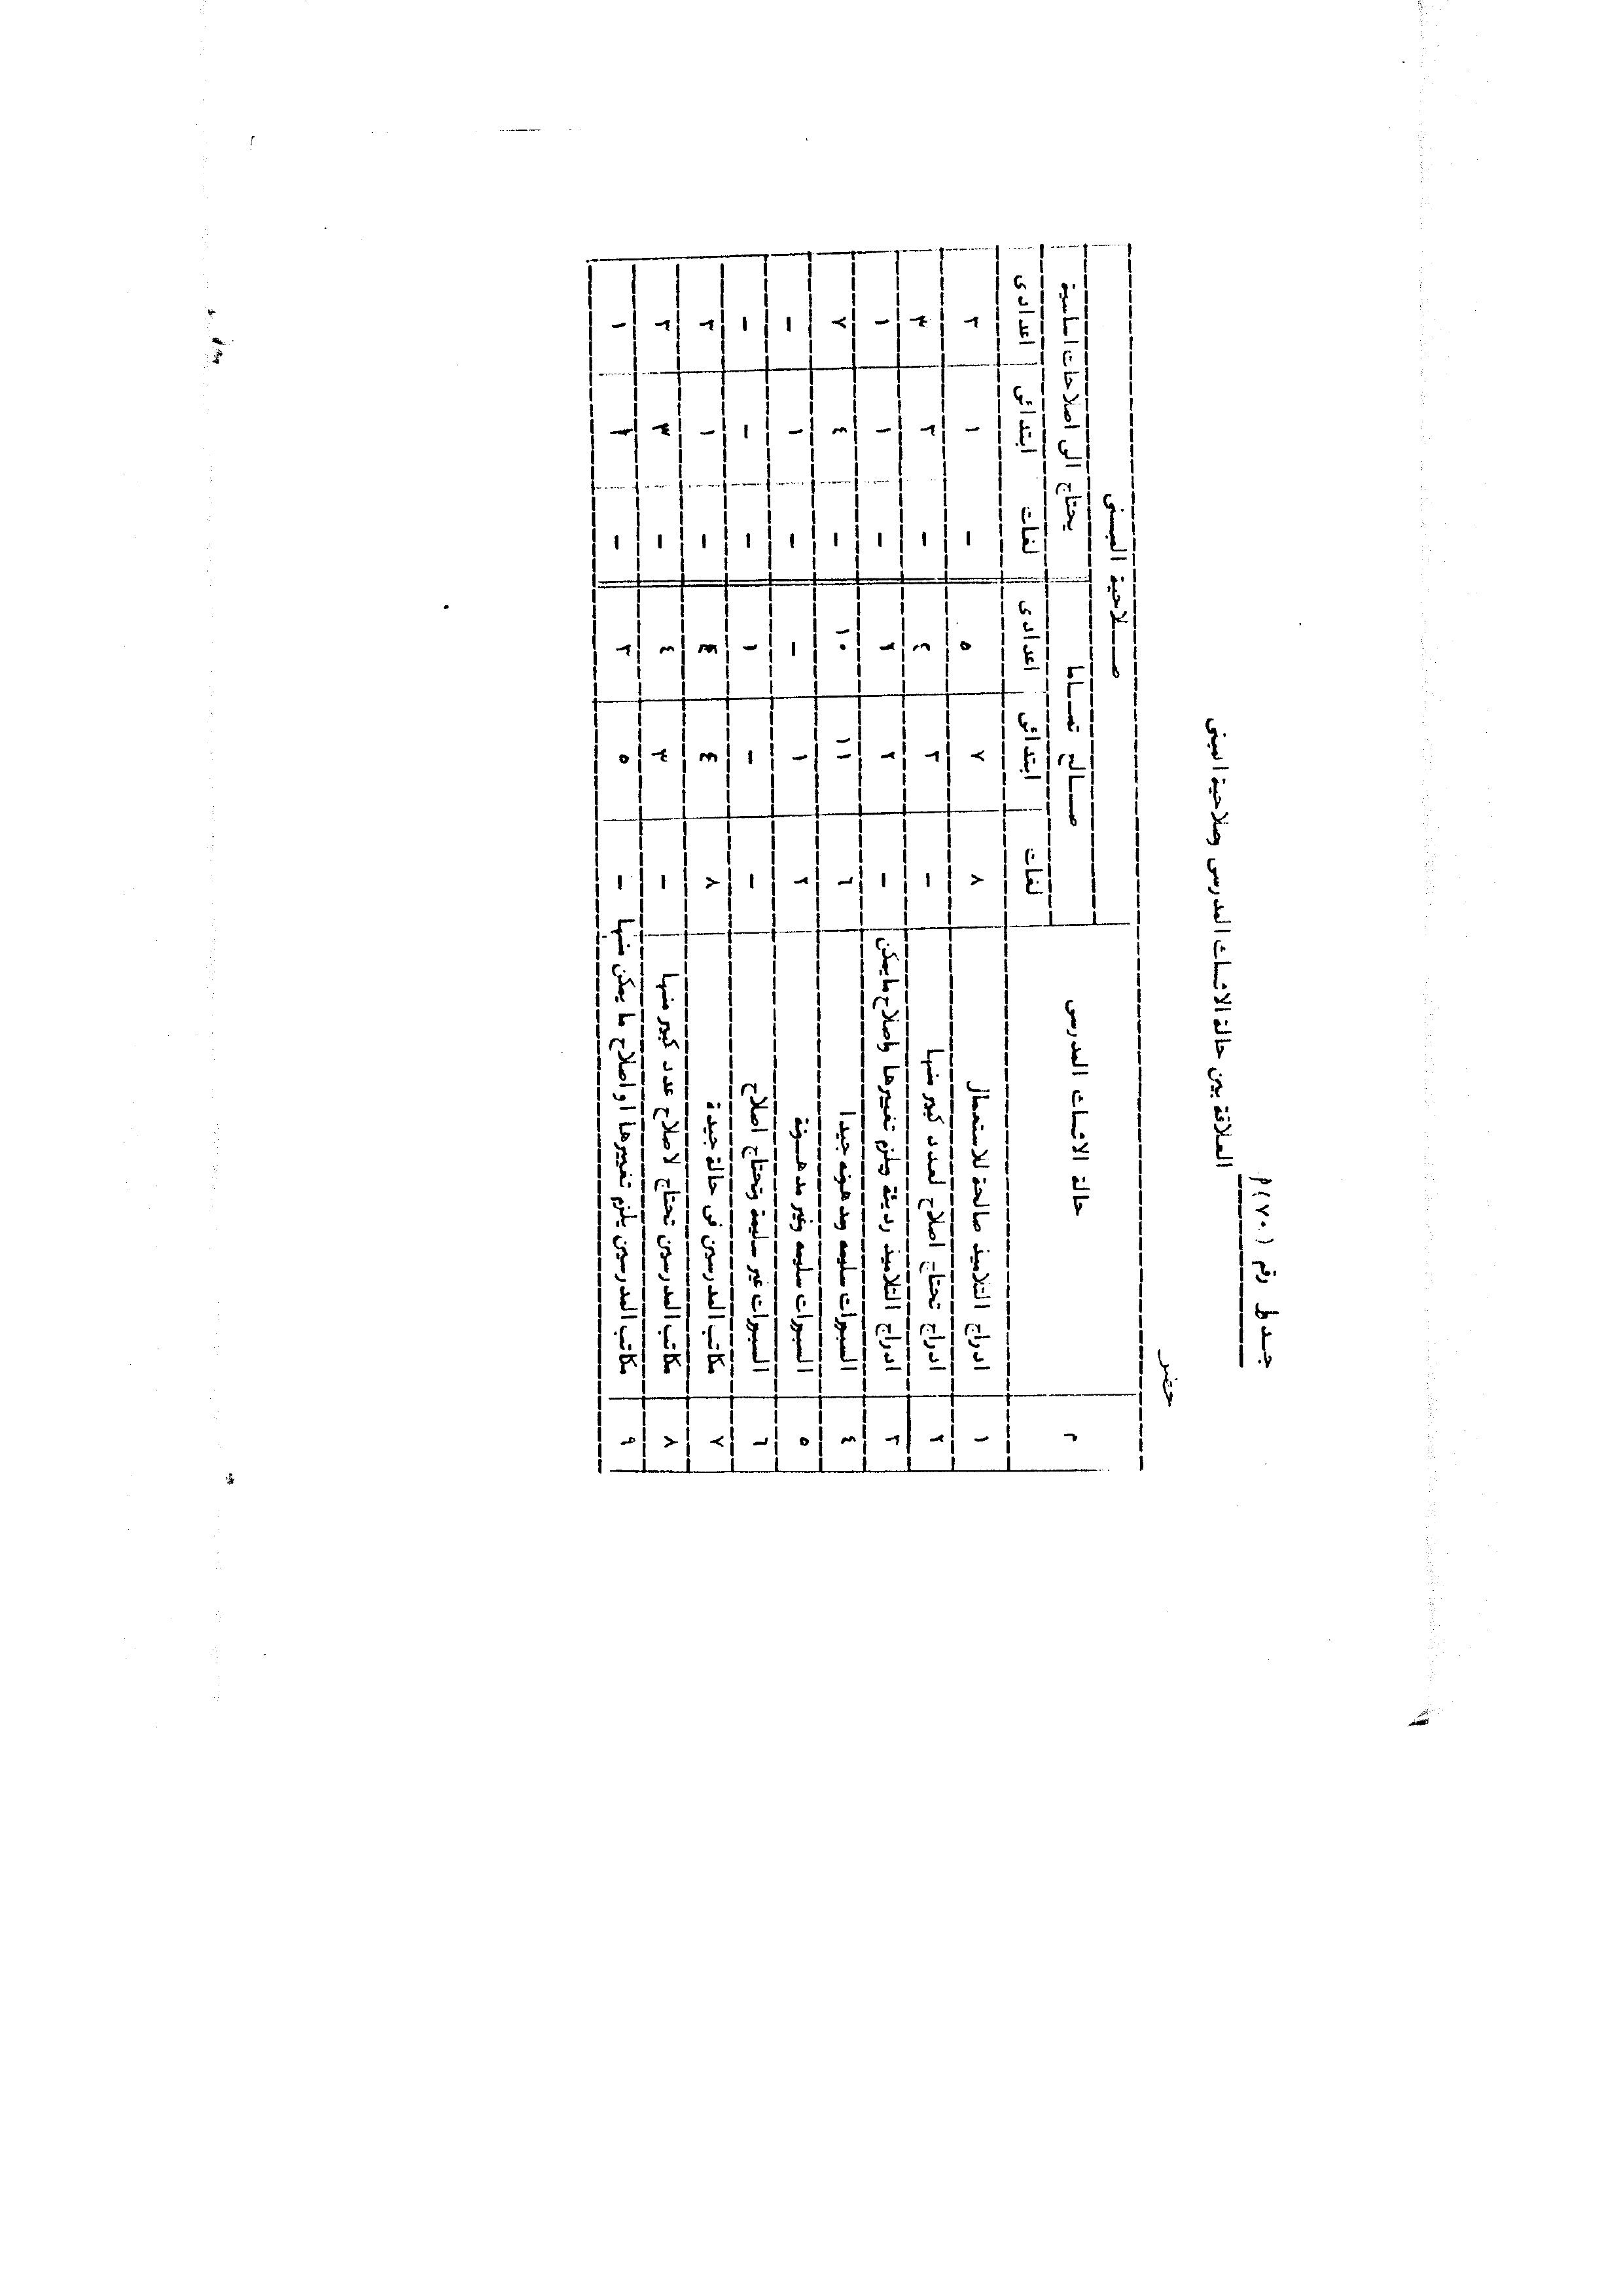 جدول رقم (٧٠) م
العلاقة بين حالة الاثاث المدرسى وصلاحية المبنى
حضر
م حالة الاثاث المدرسى صلاحية المبنى
صالح تماما يحتاج الى اصلاحات اساسية
لغات ابتدائى اعدادى لغات ابتدائى اعدادى
١ ادراج التلاميذ صالحة للاستعمال ٨ ٧ ٥ - ١ ٢
٢ ادراج تحتاج اصلاح لعدد كبير منها - ٢ ٤ - ٢ ٣
٣ ادراج التلاميذ رديئة ويلزم تغييرها واصلاح ما يمكن - ٢ ٢ - ١ ١
٤ السبورات سليمه ومدهونه جيدا ٦ ١١ ١٠ - ٤ ٧
٥ السبورات سليمه وغير مدهونة ٢ ١ - - ١ -
٦ السبورات غير سليمة وتحتاج اصلاح - - ١ - - -
٧ مكاتب المدرسين فى حالة جيدة ٨ ٤ - ١ ٢
٨ مكاتب المدرسين تحتاج لاصلاح عدد كبير منها - ٣ ٤ - ٣ ٢
٩ مكاتب المدرسين يلزم تغييرها او اصلاح ما يمكن منها - ٥ ٢ - ٢ ١